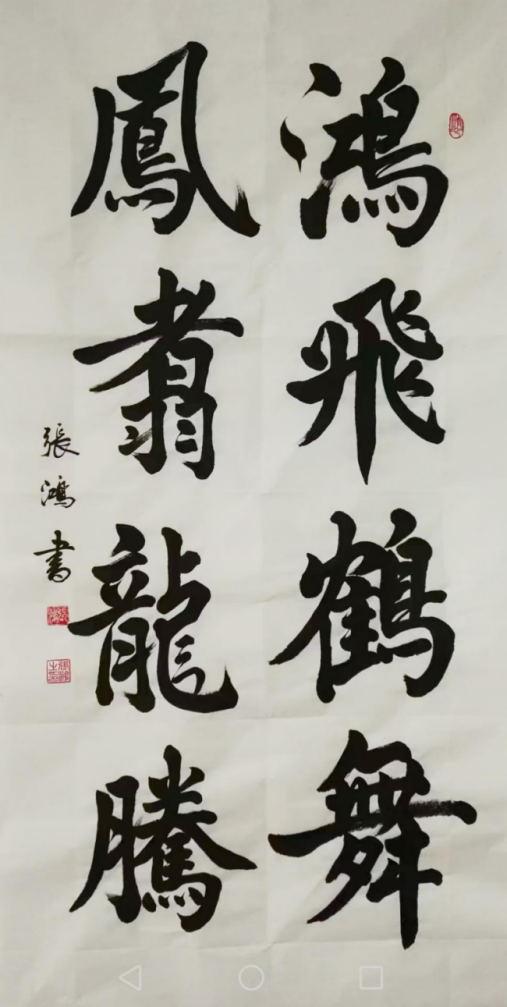 鴻飛鶴舞
鳳翥龍騰
張鴻書